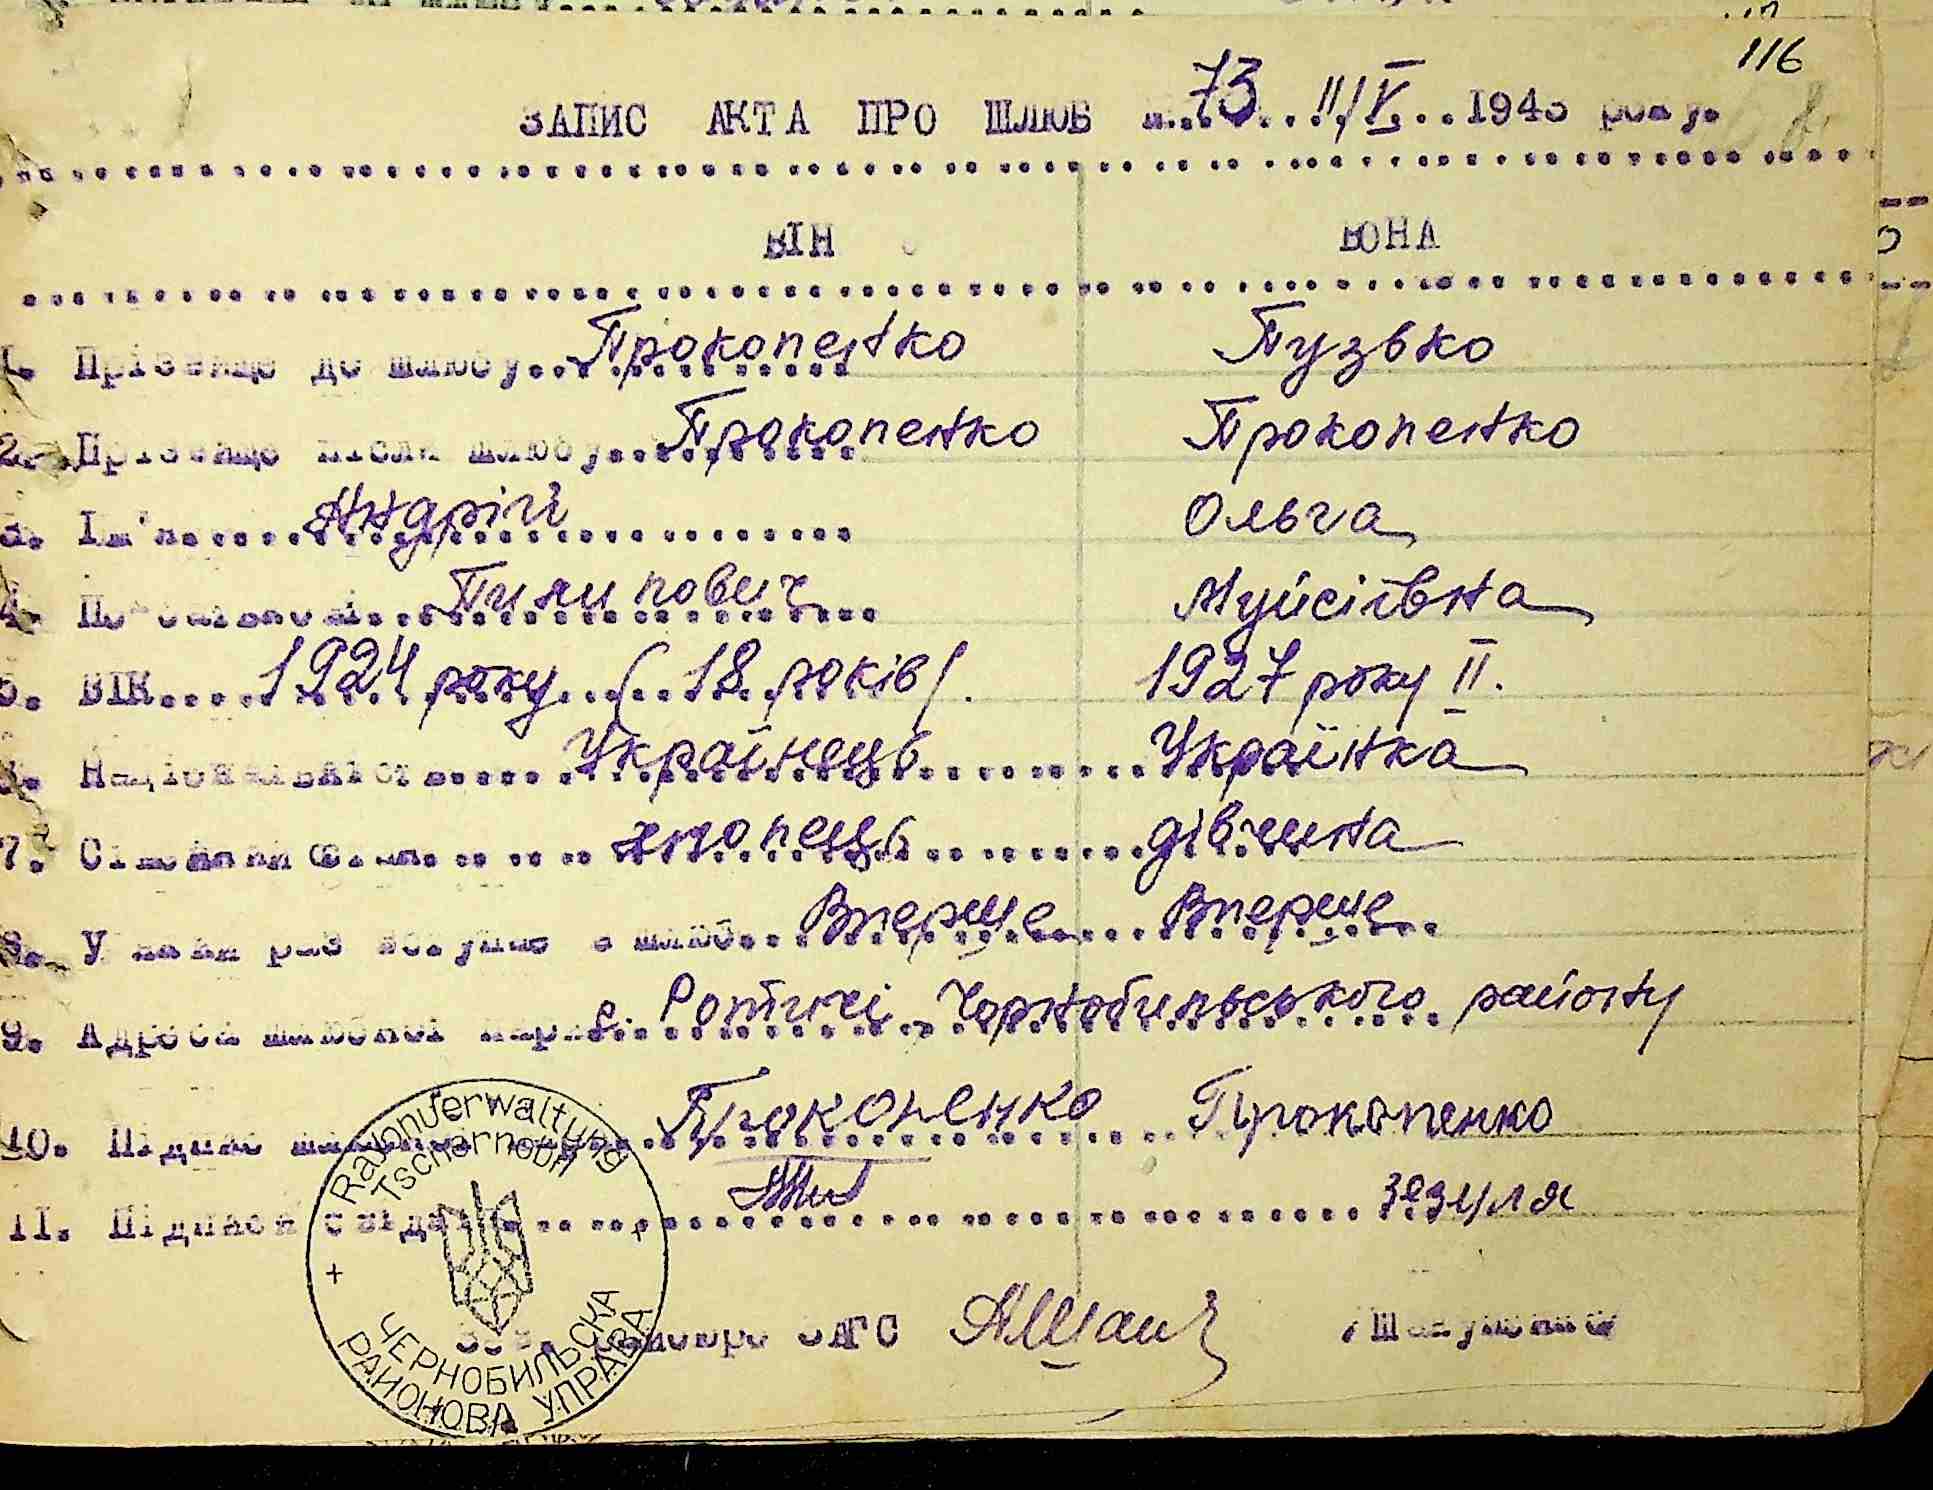 116
ЗАПИС АКТА ПРО ШЛЮБ №..73...11/V...1943 року.
ВІН ВОНА
1. Прізвище до шлюбу... Прокопенко Пузько
2. Прізвище після шлюбу... Прокопенко Прокопенко
3. Ім'я... Андрій Ольга
4. По-батькові... Пилипович Муйсіївна
5. ВІК.... 1924 року (18 років). 1927 року II.
6. Національність..... Українець Українка
7. Сімейний стан..... хлопець дівчина
8. У який раз вступає в шлюб... Вперше Вперше
9. Адреса шлюбної пари с. Ропичі Чорнобильського району
10. Підпис шлюбної Прокопенко Прокопенко
11. Підписи свідків Зезуля
Зав. бюро ЗАГС
Rayonverwaltung
Tschernobil
ЧЕРНОБИЛЬСКА
РАЙОНОВА УПРАВА